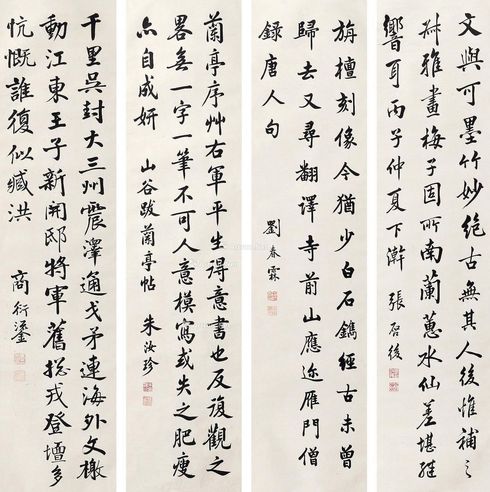 文與可墨竹妙絕古無其人後惟補之
稱雅畫梅子固所南蘭蕙水仙差堪繼
響耳丙子仲夏下澣 張啓後
旃檀刻像今猶少白石鐫經古未曾
歸去又尋翻譯寺前山應逐雁門僧
錄唐人句
劉春霖
蘭亭序艸右軍平生得意書也反復觀之
畧無一字一筆不可人意摸寫或失之肥瘦
亦自成妍 山谷跋蘭亭帖 朱汝珍
千里吳封大三州震澤通戈矛連海外文檄
動江東王子新開邸將軍舊總戎登壇多
忼慨誰復似臧洪
商衍鎏